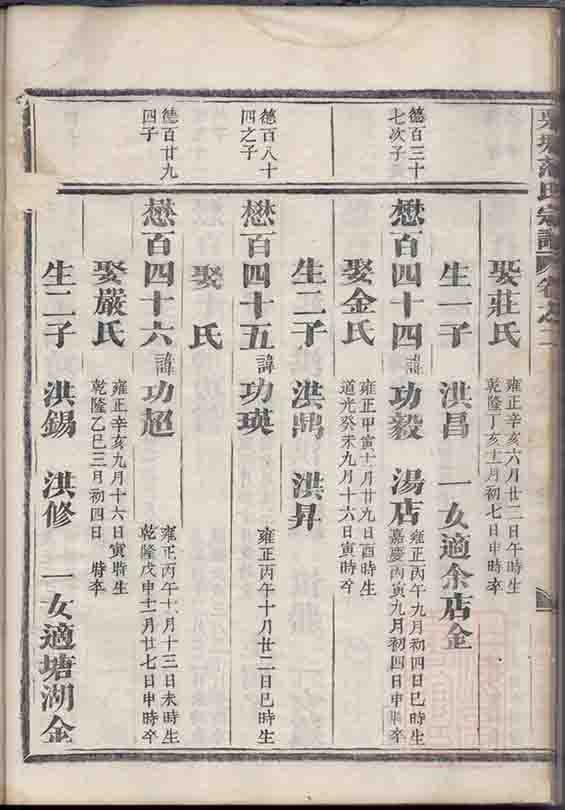 氏宗譜 卷之
娶莊氏 雍正辛亥六月廿二日午時生
乾隆丁亥十一月初七日申時卒
生一子 洪昌 一女適余店金
德百三十
七次子
懋百四十四 諱 功毅 湯店 雍正丙午九月初四日巳時生
嘉慶丙寅九月初四日申時卒
娶金氏 雍正甲寅十一月廿九日酉時生
道光癸未九月十六日寅時卒
生二子 洪鼎 洪昇
德百八十
四之子
懋百四十五 諱 功瑛 雍正丙午十月廿二日巳時生
娶 氏
德百廿九
四子
懋百四十六 諱 功超 雍正丙午十一月十三日未時生
乾隆戊申十二月廿七日申時卒
娶嚴氏 雍正辛亥九月十六日寅時生
乾隆乙巳三月初四日 時卒
生二子 洪錫 洪修 一女適塘湖金